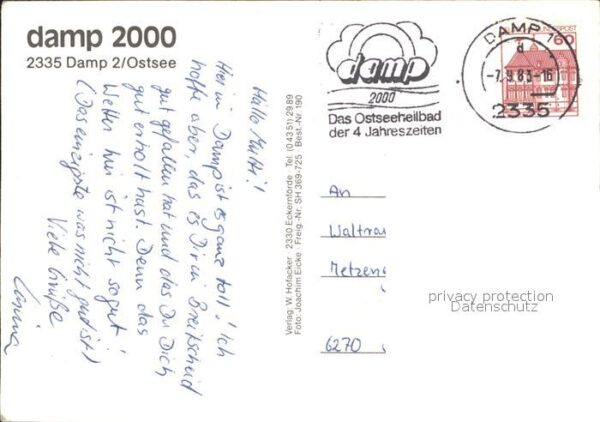 damp 2000
2335 Damp 2/Ostsee
Hallo Mutti!
Hier in Damp ist es ganz toll! Ich
hoffe aber, das es Dir in Breitscheid
gut gefallen hat und das Du Dich
gut erholt hast. Denn das
Wetter hier ist nicht so gut!
(Das einzigste was nicht gut ist!)
Viele Grüße
Verlag: W. Hofacker · 2330 Eckernförde · Tel. (0 43 51) 29 89
Foto: Joachim Eicke · Freig.-Nr. SH 369-725 · Best.-Nr. 190
damp
2000
Das Ostseeheilbad
der 4 Jahreszeiten
DAMP 1
d
-7.9.83-16
2335
60
An
Waltrau
Metzen
6270
privacy protection
Datenschutz